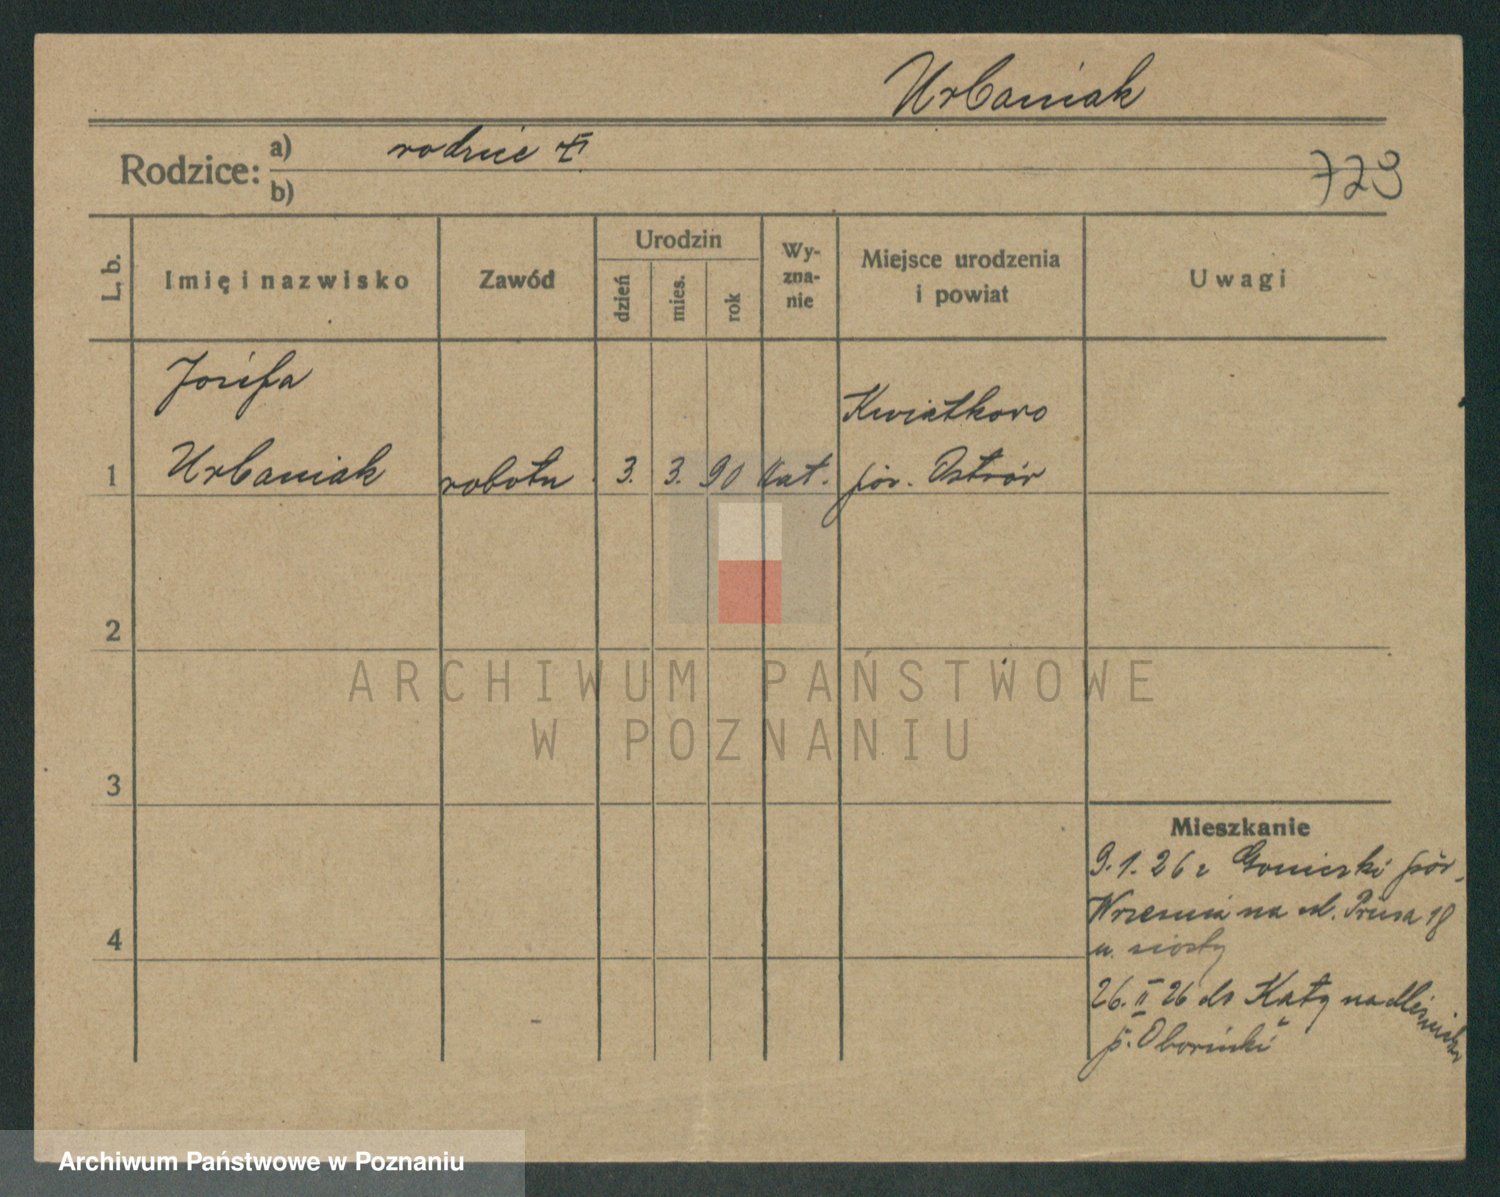 Urbaniak
Rodzice: a) rodzice
b)
729
L. b.
Imię i nazwisko
Zawód
Urodzin
dzień
mies.
rok
Wy-
zna-
nie
Miejsce urodzenia
i powiat
Uwagi
Józefa
Kwiatkowo
1 Urbaniak robotn. 3. 3. 90 kat. pow. Ostrów
2
ARCHIWUM PAŃSTWOWE
W POZNANIU
3
Mieszkanie
9.1.26 z Goniczki pow.
Września na ul. Prusa 18
u. siostry
4
26. II 26 do Kąty
p. Obornicki
Archiwum Państwowe w Poznaniu